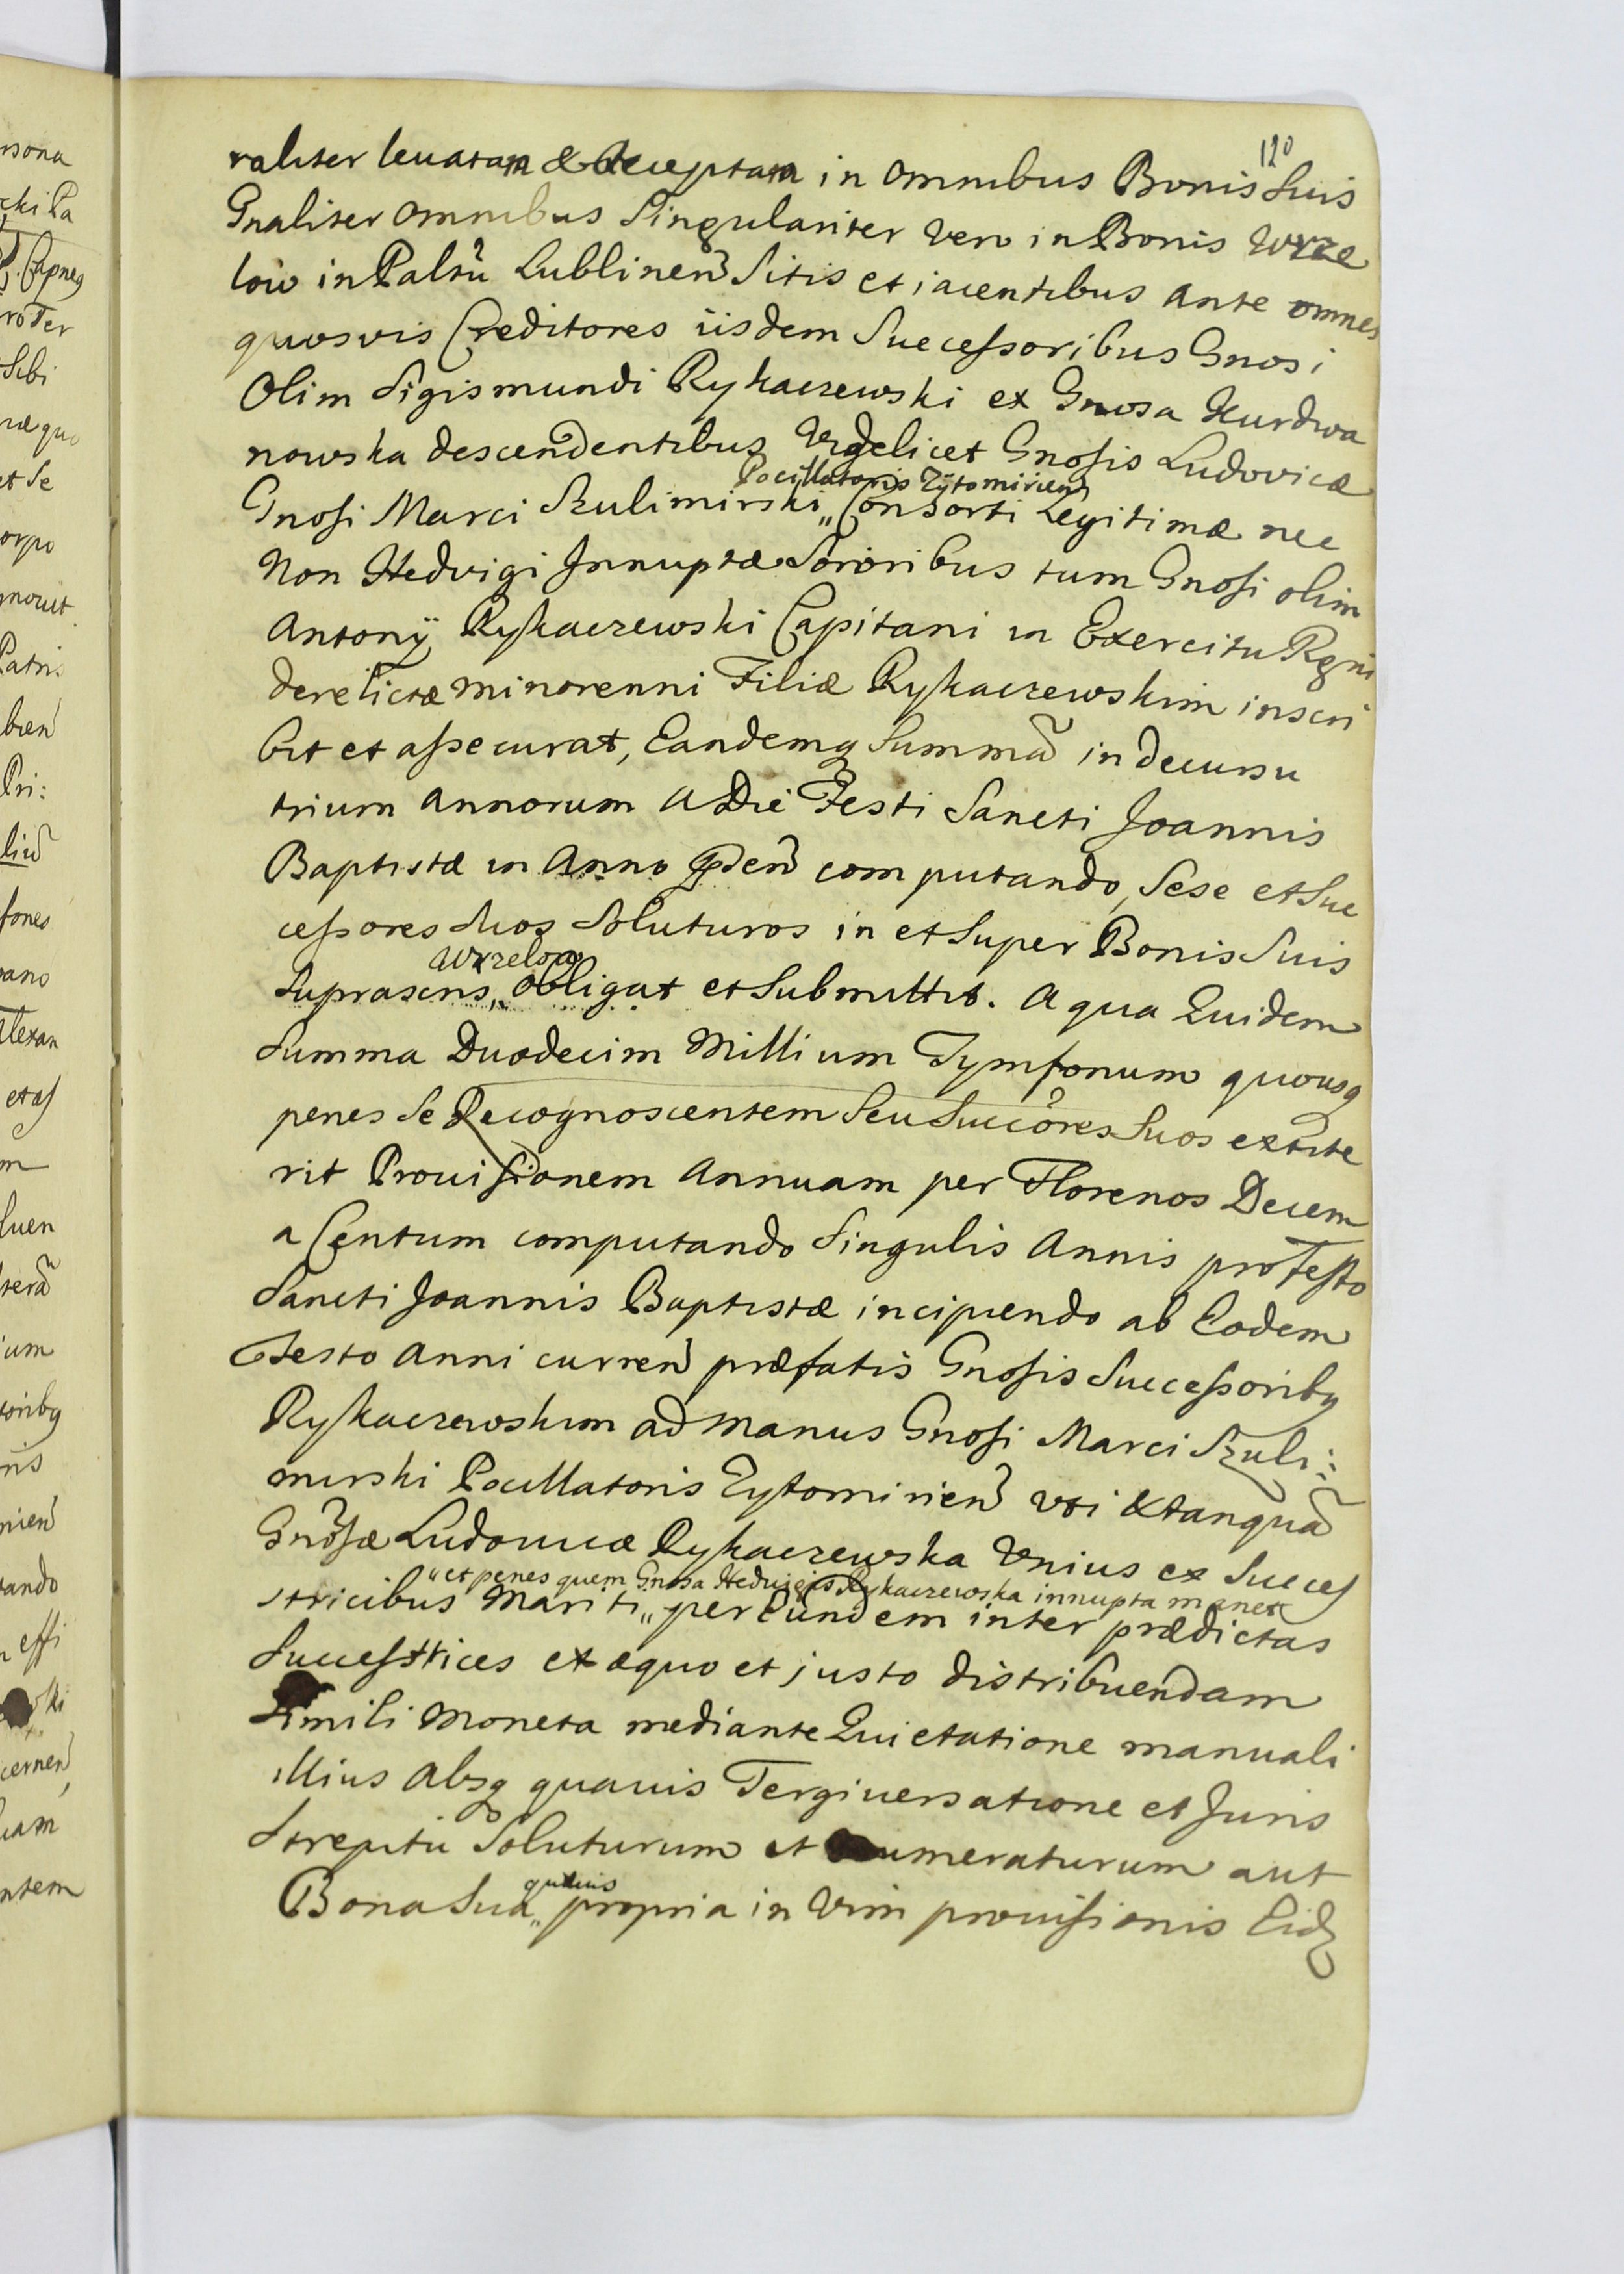 120
raliter leuatam & acceptam in omnibus Bonis Suis
Gnaliter omnibus Singulariter vero in Bonis Wrze
low in Paltũ Lublineñ Sitis et iacentibus ante omnes
quosvis Creditores iisdem Successoribus Gnosi
Olim Sigismundi Rykaczewski ex Gnosa Hurdwa
nowska descendentibus Videlicet Gnosis Ludovicæ
Pocillatoris Zÿtomirieñ
Gnosi Marci Szulimirski „ Consorti Legitimæ nec
Non Hedvigi Innuptæ Sororibus tum Gnosi olim
Antonÿ Rykaczewski Capitani in Exercitu Regni
derelictæ minorenni Filiæ Rykaczewskim inscri
bit et assecurat, Eandemq Summã in decursu
trium annorum a Die Festi Sancti Joannis
Baptistæ in Anno p̃deñ computando, Sese et Suc
cessores Suos Soluturos in et Super Bonis Suis
Wrzelow
Suprascris „ obligat et Submittit. A qua Quidem
Summa Duodecim Millium Tymfonum quousq
penes Se Recognoscentem Seu Succõres Suos extite
rit Prouisionem Annuam per Florenos Decem
a Centum computando Singulis Annis pro Festo
Sancti Joannis Baptistæ incipiendo ab Eodem
Festo Anni curreñ præfatis Gnosis Successoribq
Rykaczewskim ad manus Gnosi Marci Szuli:
mirski Pocillatoris Zytomirieñ vti & tanquã
Gnõsæ Ludouicæ Rykaczewska Vnius ex Succes
„ et penes quem Gnosa Hedvigis Rykaczewska innupta manet
stricibus Mariti „ per Eundem inter prædictas
Successtrices ex æquo et justo distribuendam
Simili Moneta mediante Quietatione manuali
illius Absq quauis Tergiuersatione et Juris
Strepitu Soluturum et numeraturum aut
quæuis
Bona Sua „ propria in Vim prouisionis Eid